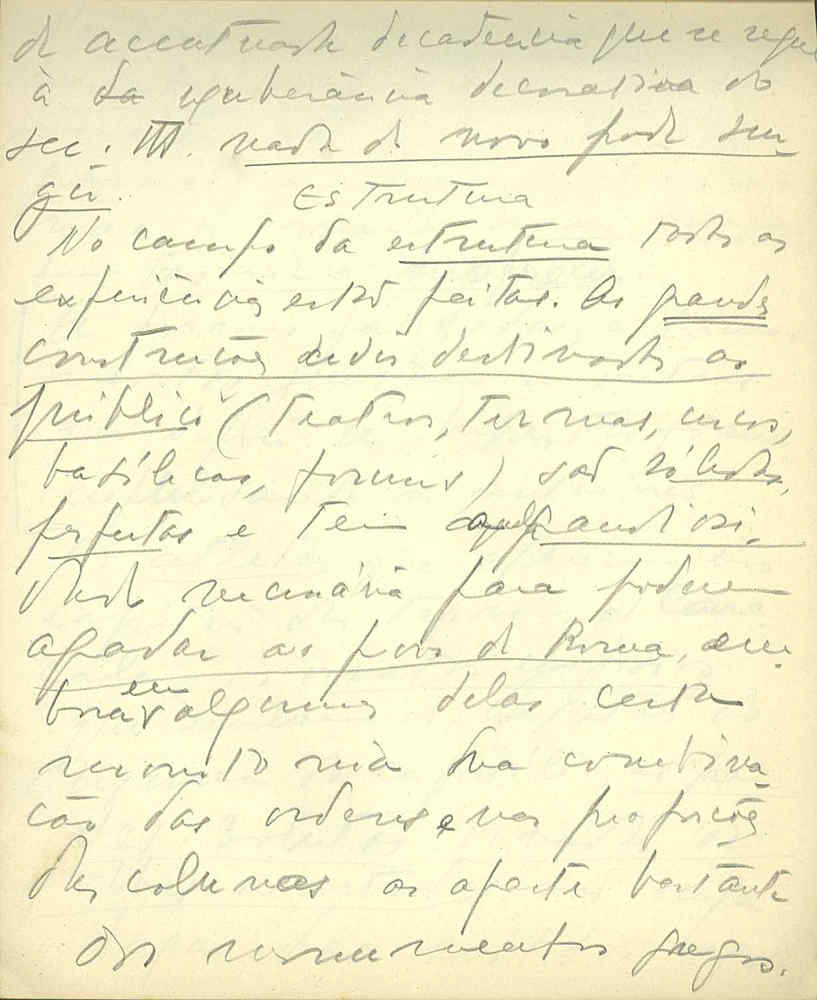 de accentuada decadencia que se segue
à da exuberância decorativa do
sec. III. nada de novo pode sur-
gir.
Estrutura
No campo da estrutura todas as
experiências estão feitas. As grandes
construções destinadas ao
público (teatros, termas, circos,
basílicas, foruns) são sólidas,
perfeitas e teem aquela grandiosi-
dade necessária para poderem
agradar ao povo de Roma, em-
bora em algumas delas certa
monotonia dua combina-
ção das ordens e nas proporções
das colunas as afaste bastante
dos monumentos gregos.